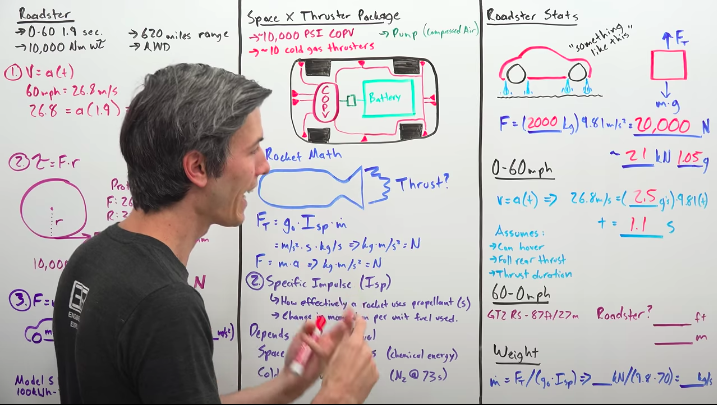 Roadster
→ 0-60 1.9 sec.
→ 10,000 Nm wt
→ 620 miles range
→ AWD
1. V = a(t)
60mph = 26.8 m/s
26.8 = a(1.9)
2. τ = F·r
r
F: 26
R: 3
10,00
N
3. F = m
Model S
100kWh-
Space X Thruster Package
→ ~10,000 PSI COPV
→ ~10 cold gas thrusters
→ Pump (Compressed Air)
COPV
Battery
Rocket Math
Thrust?
F_T = g₀·Isp·ṁ
= m/s²·s·kg/s ⇒ kg·m/s² = N
F = m·a ⇒ kg·m/s² = N
2. Specific Impulse (Isp)
↳ How effectively a rocket uses propellant (s)
→ Change per unit fuel used.
Depends
Space (chemical energy)
Cold (N₂ @ 73s)
Roadster Stats
"something like this"
F_T
m·g
F = (2000 kg) 9.81 m/s² = 20,000 N
~ 21 kN 1.05 g
0-60mph
v = a(t) ⇒ 26.8 m/s = (2.5 g's)·9.81(t)
t = 1.1 s
Assumes:
→ Can hover
→ Full rear thrust
→ Thrust duration
60-0mph
GT2 RS - 87ft/27m Roadster? ___ ft
___ m
Weight
ṁ = F_T/(g₀·Isp) ⇒ __ kN/(9.8·70) = __ kg/s